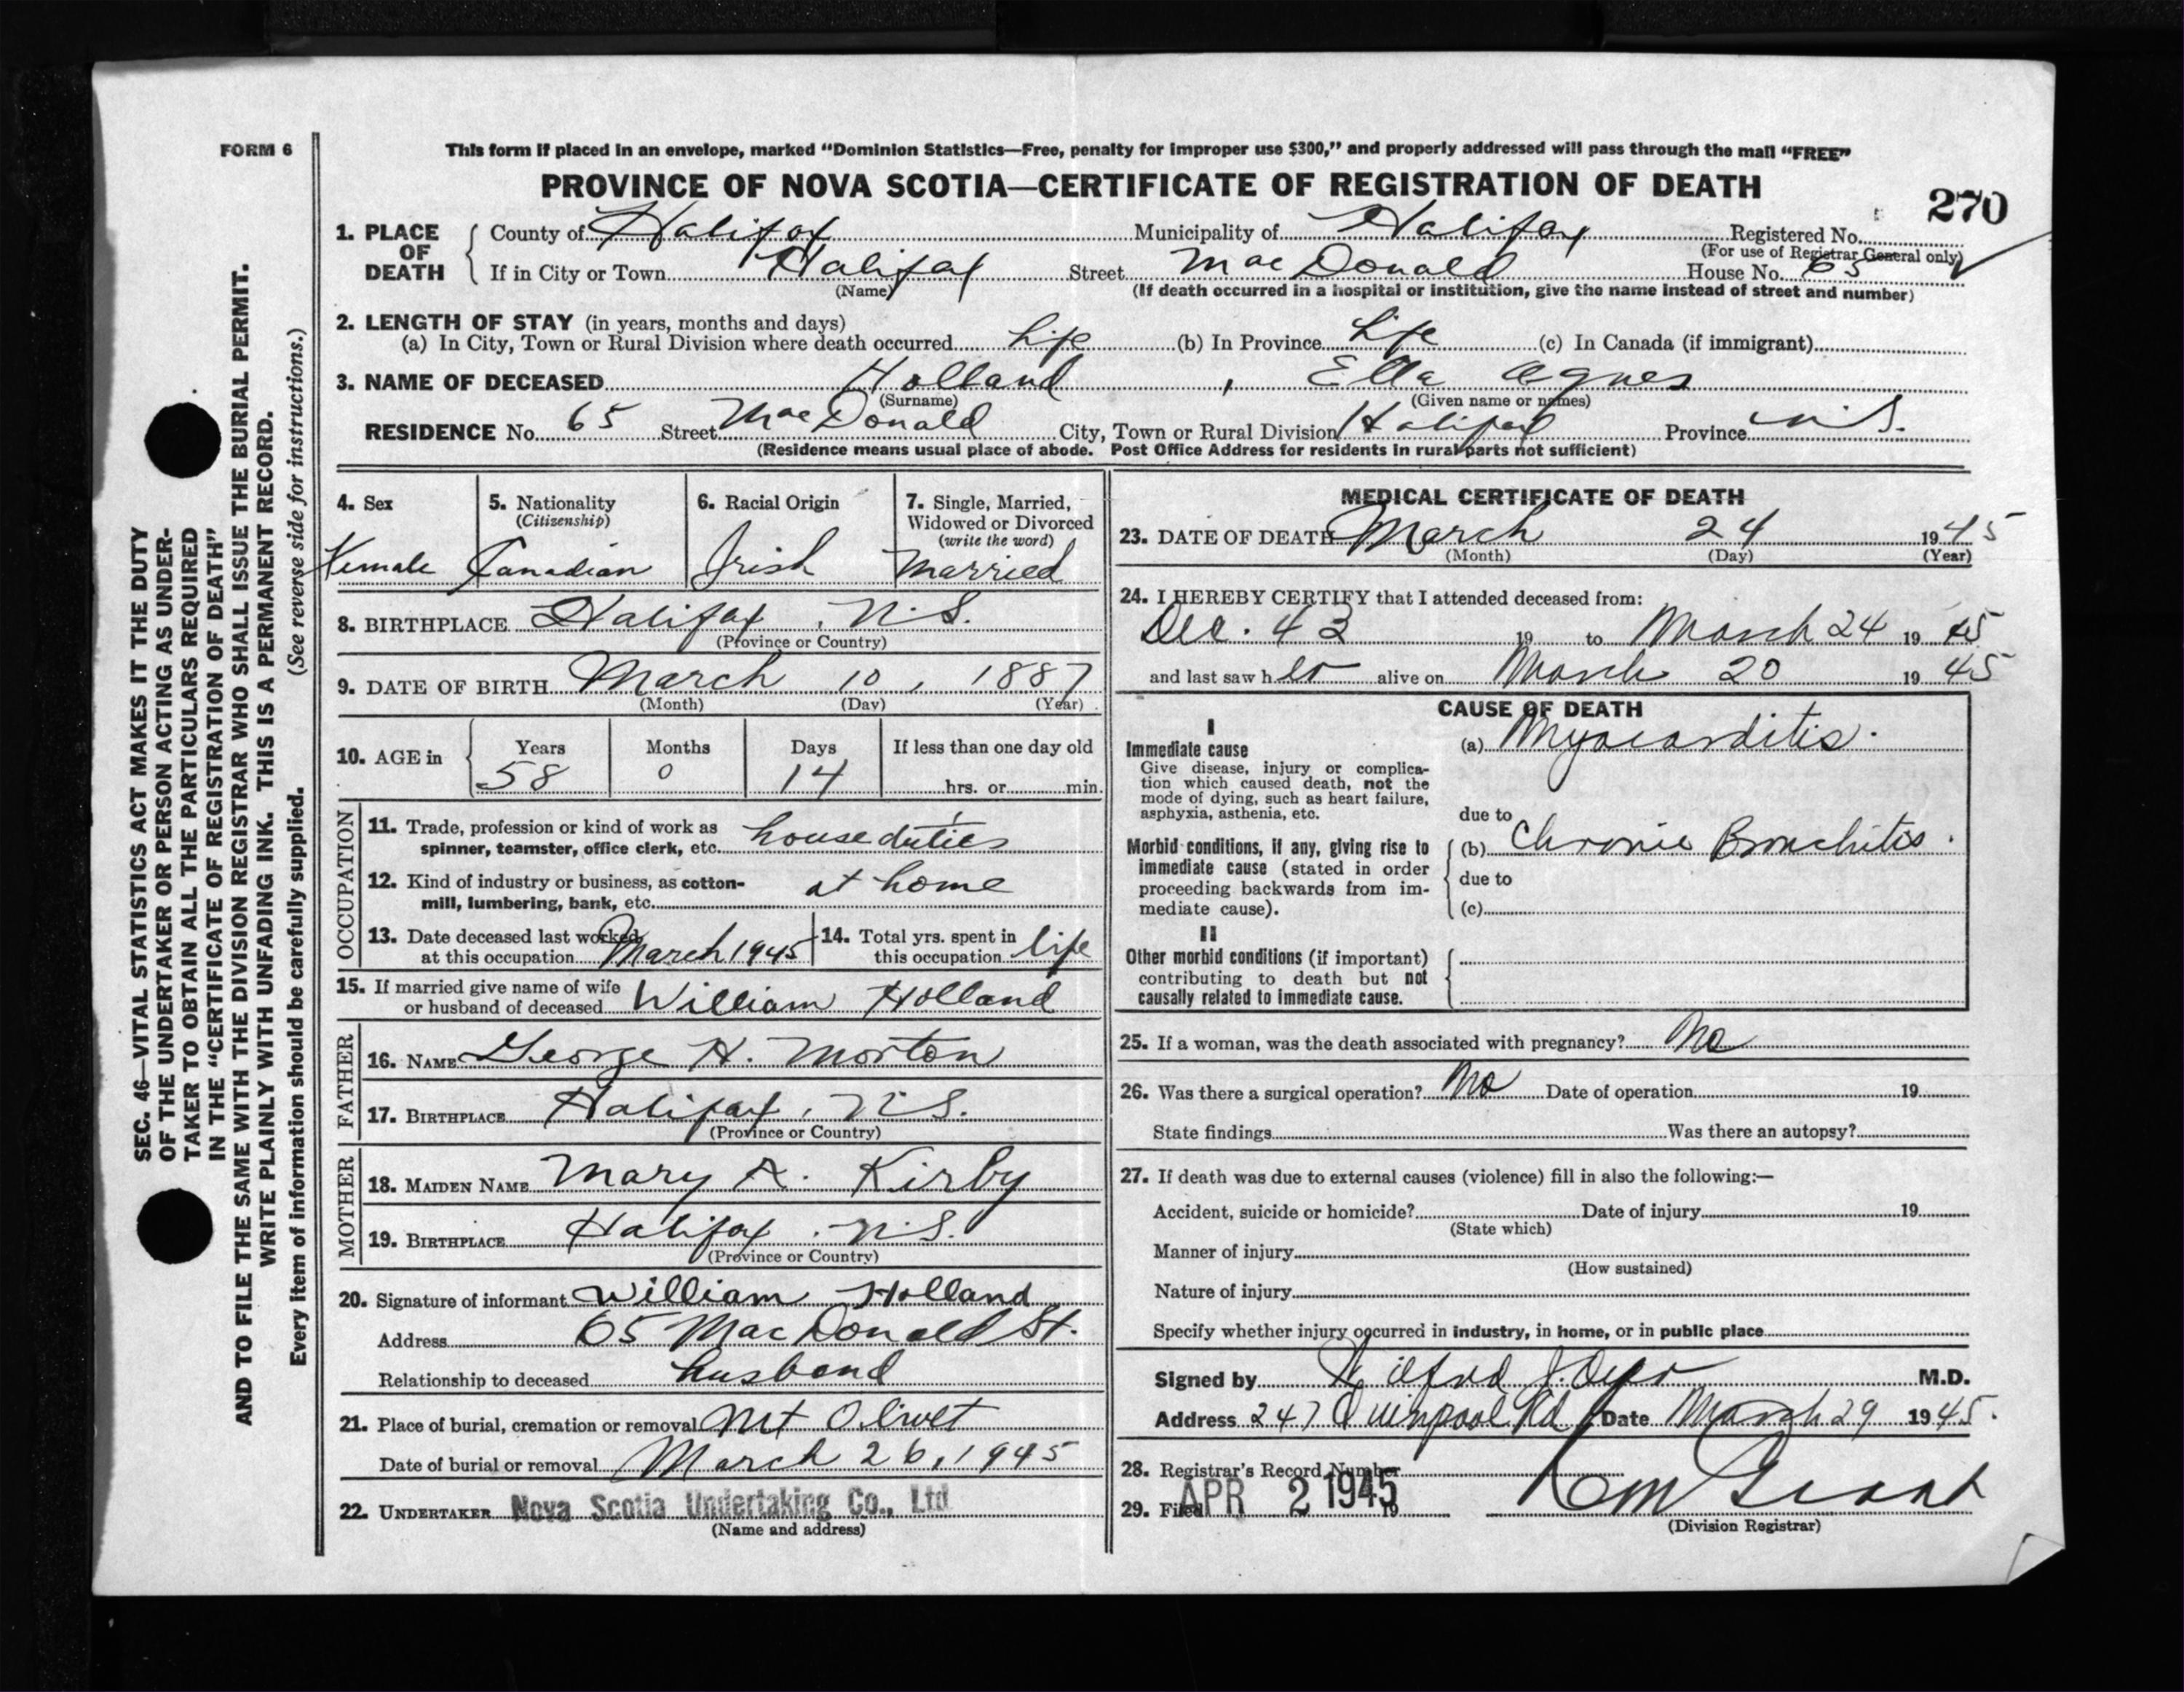 FORM 6
This form if placed in an envelope, marked “Dominion Statistics—Free, penalty for improper use $300,” and properly addressed will pass through the mail “FREE”
PROVINCE OF NOVA SCOTIA—CERTIFICATE OF REGISTRATION OF DEATH
270
1. PLACE OF DEATH
County of Halifax Municipality of Halifax Registered No.
(For use of Registrar General only)
If in City or Town Halifax Street MacDonald House No. 65
(Name) (If death occurred in a hospital or institution, give the name instead of street and number)
2. LENGTH OF STAY (in years, months and days)
(a) In City, Town or Rural Division where death occurred life (b) In Province Life (c) In Canada (if immigrant)
3. NAME OF DECEASED Holland , Ella Agnes
(Surname) (Given name or names)
RESIDENCE No. 65 Street MacDonald City, Town or Rural Division Halifax Province N.S.
(Residence means usual place of abode. Post Office Address for residents in rural parts not sufficient)
4. Sex
Female
5. Nationality
(Citizenship)
Canadian
6. Racial Origin
Irish
7. Single, Married,
Widowed or Divorced
(write the word)
Married
8. BIRTHPLACE Halifax, N.S.
(Province or Country)
9. DATE OF BIRTH March 10, 1887
(Month) (Day) (Year)
10. AGE in
Years Months Days If less than one day old
58 0 14 hrs. or min.
OCCUPATION
11. Trade, profession or kind of work as
spinner, teamster, office clerk, etc. house duties
12. Kind of industry or business, as cotton-
mill, lumbering, bank, etc. at home
13. Date deceased last worked
at this occupation March 1945
14. Total yrs. spent in
this occupation life
15. If married give name of wife
or husband of deceased William Holland
FATHER
16. NAME George H. Morton
17. BIRTHPLACE Halifax, N.S.
(Province or Country)
MOTHER
18. MAIDEN NAME Mary A. Kirby
19. BIRTHPLACE Halifax, N.S.
(Province or Country)
20. Signature of informant William Holland
Address 65 MacDonald St.
Relationship to deceased husband
21. Place of burial, cremation or removal Mt Olivet
Date of burial or removal March 26, 1945
22. UNDERTAKER Nova Scotia Undertaking Co., Ltd
(Name and address)
MEDICAL CERTIFICATE OF DEATH
23. DATE OF DEATH March 24 1945
(Month) (Day) (Year)
24. I HEREBY CERTIFY that I attended deceased from:
Dec. 43 19 to March 24 19 45
and last saw h er alive on March 20 19 45
CAUSE OF DEATH
I
Immediate cause
Give disease, injury or complica-
tion which caused death, not the
mode of dying, such as heart failure,
asphyxia, asthenia, etc.
(a) Myocarditis.
due to
Morbid conditions, if any, giving rise to
immediate cause (stated in order
proceeding backwards from im-
mediate cause).
(b) Chronic Bronchitis.
due to
(c)
II
Other morbid conditions (if important)
contributing to death but not
causally related to immediate cause.
25. If a woman, was the death associated with pregnancy? No
26. Was there a surgical operation? No Date of operation 19
State findings Was there an autopsy?
27. If death was due to external causes (violence) fill in also the following:—
Accident, suicide or homicide? Date of injury 19
(State which)
Manner of injury
(How sustained)
Nature of injury
Specify whether injury occurred in industry, in home, or in public place
Signed by Wilfred J. M.D.
Address 247 Quinpool Rd Date March 29 1945.
28. Registrar's Record Number
29. Filed APR 2 1945 19
Grant
(Division Registrar)
SEC. 46—VITAL STATISTICS ACT MAKES IT THE DUTY
OF THE UNDERTAKER OR PERSON ACTING AS UNDER-
TAKER TO OBTAIN ALL THE PARTICULARS REQUIRED
IN THE “CERTIFICATE OF REGISTRATION OF DEATH”
AND TO FILE THE SAME WITH THE DIVISION REGISTRAR WHO SHALL ISSUE THE BURIAL PERMIT.
WRITE PLAINLY WITH UNFADING INK. THIS IS A PERMANENT RECORD.
Every item of information should be carefully supplied. (See reverse side for instructions.)